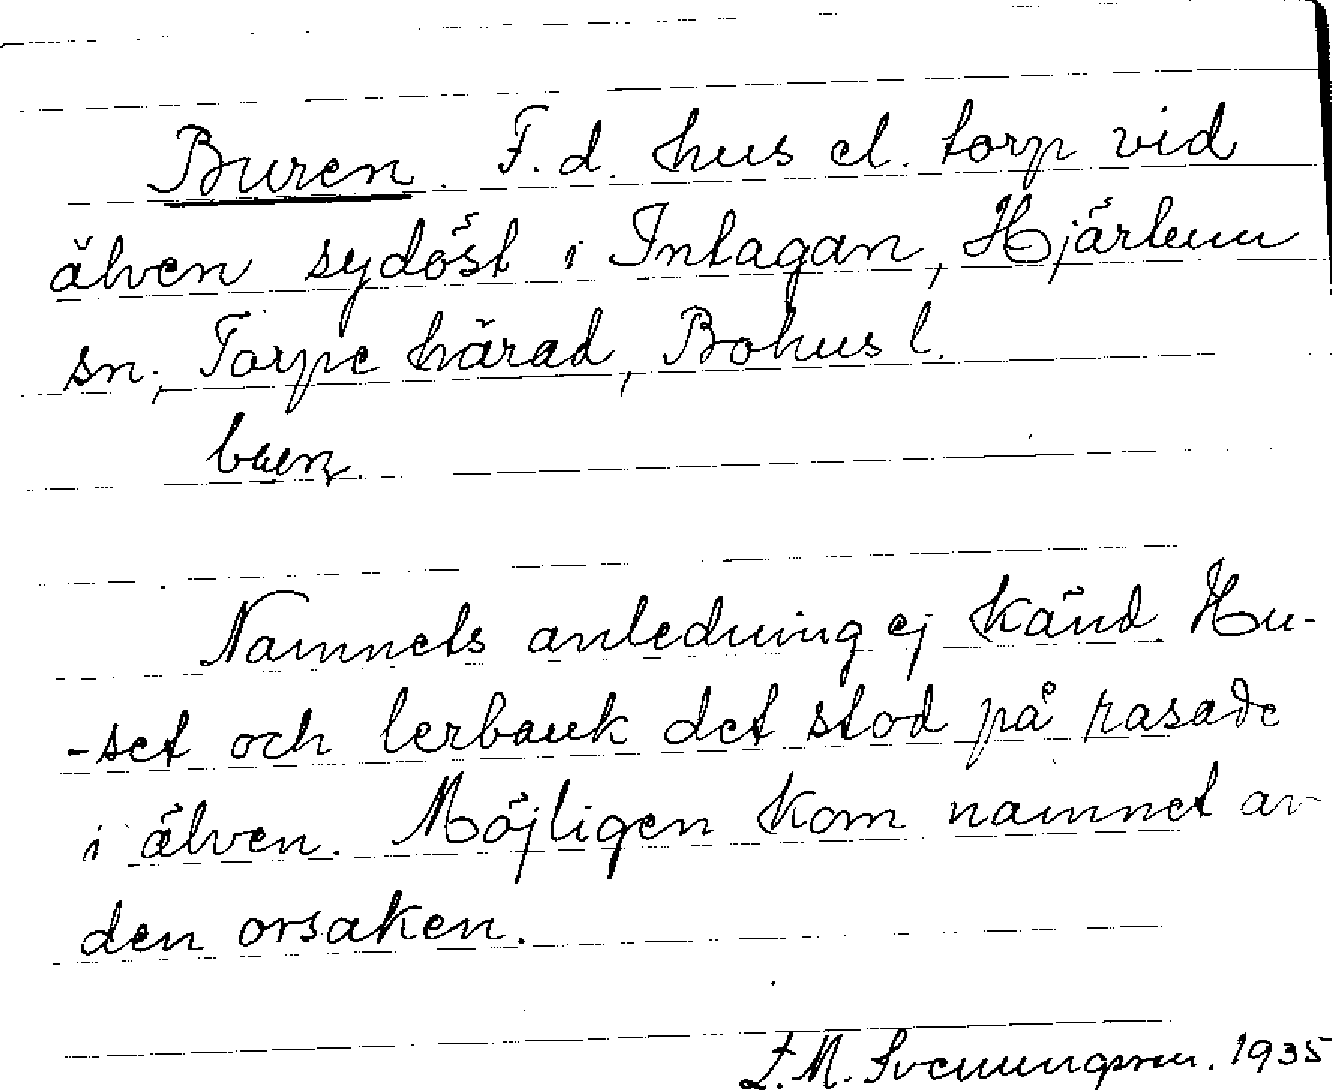 Buren. F.d. hus el. torp vid
älven sydöst i Intagan, Hjärtum
sn, Torpe härad, Bohusl.
Namnets anledning ej känd. Hu-
-set och lerbank det stod på rasade
i älven. Möjligen kom namnet av
den orsaken.
Z.M. Svenungsson. 1935